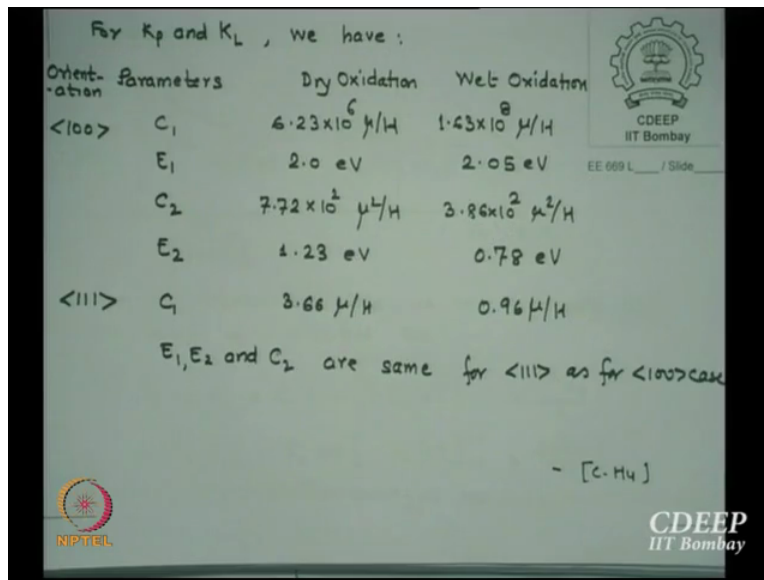 For Kp and KL , we have :
Orient-
-ation Parameters Dry Oxidation Wet Oxidation
<100> C1 6.23x10^6 μ/H 1.63x10^8 μ/H
E1 2.0 eV 2.05 eV
C2 7.72x10^2 μ^2/H 3.86x10^2 μ^2/H
E2 1.23 eV 0.78 eV
<111> C1 3.66 μ/H 0.96 μ/H
E1, E2 and C2 are same for <111> as for <100> case
- [C. Hu]
CDEEP
IIT Bombay
EE 669 L___ / Slide___
NPTEL
CDEEP
IIT Bombay